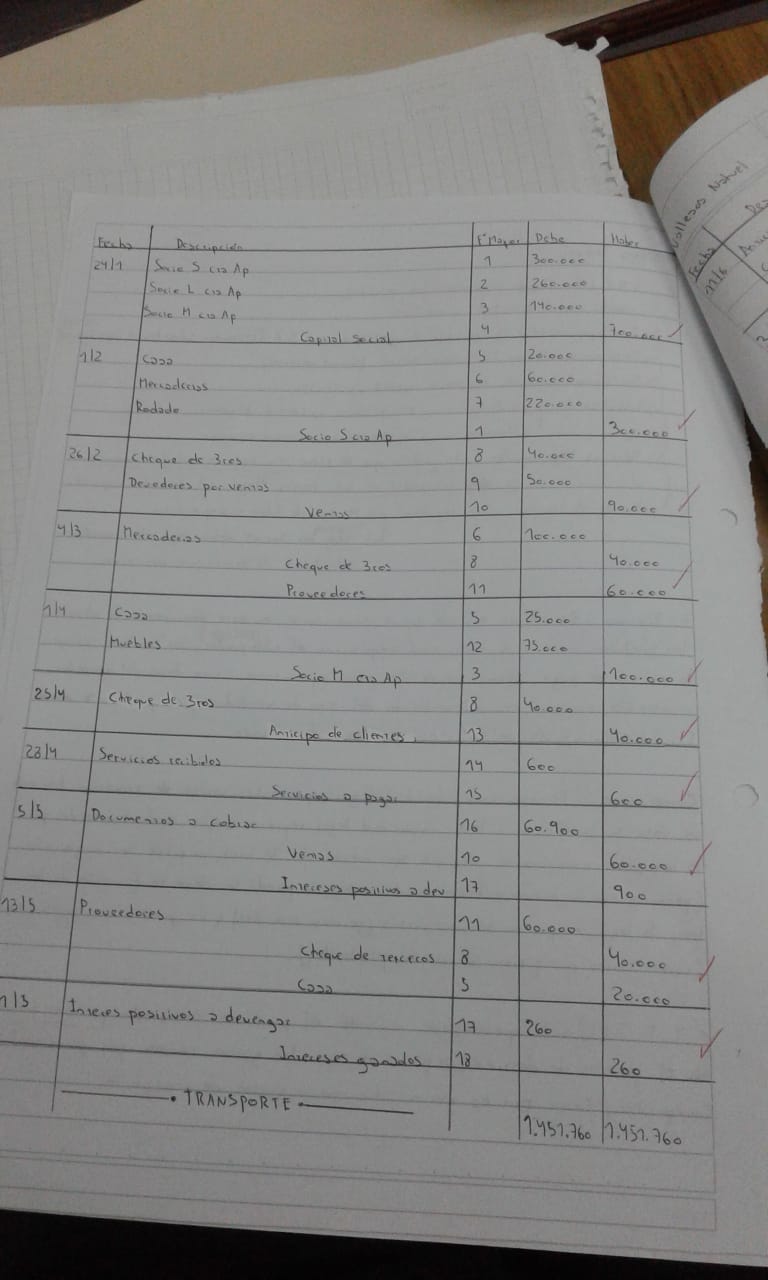 Fecha Descripción F° Mayor Debe Haber
24/1 Socio S cta Ap 1 300.000
Socio L cta Ap 2 260.000
Socio M cta Ap 3 140.000
Capital Social 4 700.000
1/2 Caja 5 20.000
Mercaderias 6 60.000
Rodado 7 220.000
Socio S cta Ap 1 300.000
26/2 Cheque de 3ros 8 40.000
Deudores por ventas 9 50.000
Ventas 10 90.000
4/3 Mercaderias 6 100.000
Cheque de 3ros 8 40.000
Proveedores 11 60.000
1/4 Caja 5 25.000
Muebles 12 75.000
Socio M cta Ap 3 100.000
25/4 Cheque de 3ros 8 40.000
Anticipo de clientes. 13 40.000
28/4 Servicios recibidos 14 600
Servicios a pagar 15 600
5/5 Documentos a cobrar 16 60.900
Ventas 10 60.000
Intereses positivos a dev 17 900
13/5 Proveedores 11 60.000
Cheque de terceros 8 40.000
Caja 5 20.000
1/5 Interes positivos a devengar 17 260
Intereses ganados 18 260
TRANSPORTE 1.451.760 1.451.760
Natuel
Fecha
11/6